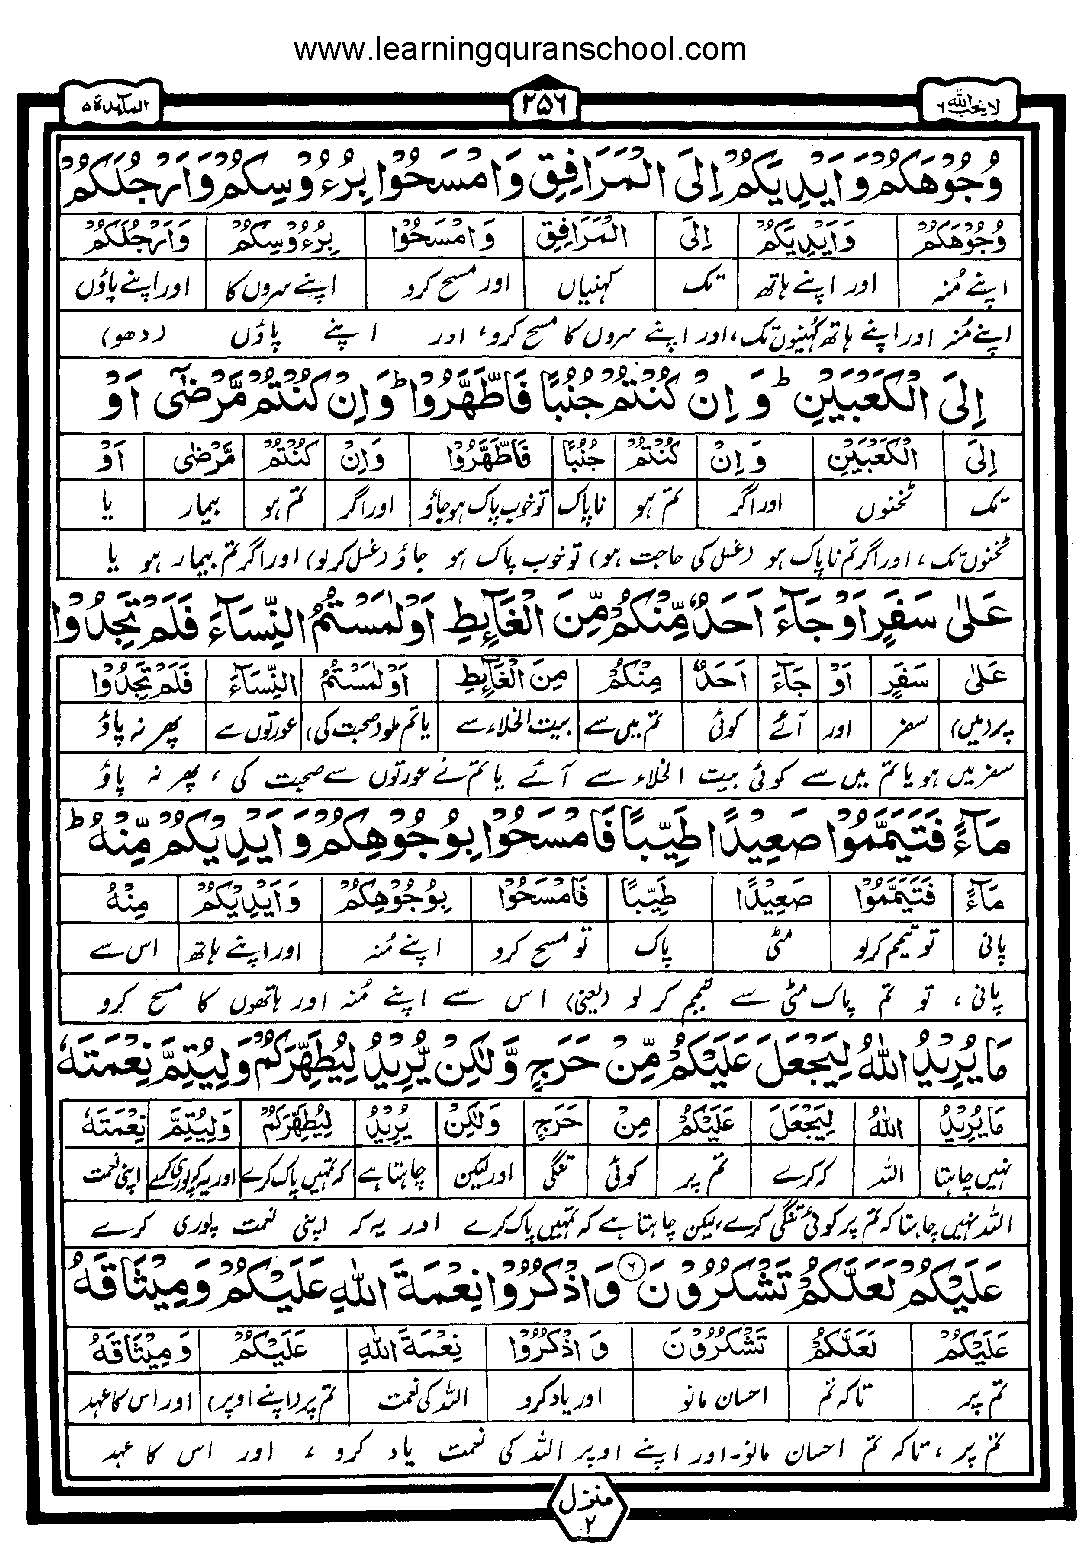 www.learningquranschool.com
لا یحب اللہ ٦ ٢٥٦ المآئدة ٥
وُجُوْهَكُمْ وَاَيْدِيَكُمْ اِلَى الْمَرَافِقِ وَامْسَحُوْا بِرُءُوْسِكُمْ وَاَرْجُلَكُمْ
وُجُوْهَكُمْ وَاَيْدِيَكُمْ اِلَى الْمَرَافِقِ وَامْسَحُوْا بِرُءُوْسِكُمْ وَاَرْجُلَكُمْ
اپنے مُنہ اور اپنے ہاتھ تک کہنیاں اور مسح کرو اپنے سروں کا اور اپنے پاؤں
اپنے مُنہ اور اپنے ہاتھ کہنیوں تک، اور اپنے سروں کا مسح کرو، اور اپنے پاؤں (دھو)
اِلَى الْكَعْبَيْنِ ؕ وَ اِنْ كُنْتُمْ جُنُبًا فَاطَّهَّرُوْا ؕ وَاِنْ كُنْتُمْ مَّرْضٰٓى اَوْ
اِلَى الْكَعْبَيْنِ وَاِنْ كُنْتُمْ جُنُبًا فَاطَّهَّرُوْا وَاِنْ كُنْتُمْ مَّرْضٰٓى اَوْ
تک ٹخنوں اور اگر تم ہو ناپاک تو خوب پاک ہو جاؤ اور اگر تم ہو بیمار یا
ٹخنوں تک، اور اگر تم ناپاک ہو (غسل کی حاجت ہو) تو خوب پاک ہو جاؤ (غسل کرلو) اور اگر تم بیمار ہو یا
عَلٰى سَفَرٍ اَوْ جَآءَ اَحَدٌ مِّنْكُمْ مِّنَ الْغَآئِطِ اَوْلٰمَسْتُمُ النِّسَآءَ فَلَمْ تَجِدُوْا
عَلٰى سَفَرٍ اَوْ جَآءَ اَحَدٌ مِنْكُمْ مِنَ الْغَآئِطِ اَوْلٰمَسْتُمُ النِّسَآءَ فَلَمْ تَجِدُوْا
پر (میں) سفر اور آئے کوئی تم میں سے بیت الخلاء سے یا تم ملو (صحبت کی) عورتوں سے پھر نہ پاؤ
سفر میں ہو یا تم میں سے کوئی بیت الخلاء سے آئے یا تم نے عورتوں سے صحبت کی، پھر نہ پاؤ
مَآءً فَتَيَمَّمُوْا صَعِيْدًا طَيِّبًا فَامْسَحُوْا بِوُجُوْهِكُمْ وَاَيْدِيْكُمْ مِّنْهُ ؕ
مَآءً فَتَيَمَّمُوْا صَعِيْدًا طَيِّبًا فَامْسَحُوْا بِوُجُوْهِكُمْ وَاَيْدِيْكُمْ مِنْهُ
پانی تو تیمم کرلو مٹی پاک تو مسح کرو اپنے مُنہ اور اپنے ہاتھ اس سے
پانی، تو تم پاک مٹی سے تیمم کر لو (یعنی) اس سے اپنے مُنہ اور ہاتھوں کا مسح کرو
مَا يُرِيْدُ اللّٰهُ لِيَجْعَلَ عَلَيْكُمْ مِّنْ حَرَجٍ وَّلٰكِنْ يُّرِيْدُ لِيُطَهِّرَكُمْ وَلِيُتِمَّ نِعْمَتَهٗ
مَا يُرِيْدُ اللّٰهُ لِيَجْعَلَ عَلَيْكُمْ مِنْ حَرَجٍ وَلٰكِنْ يُرِيْدُ لِيُطَهِّرَكُمْ وَلِيُتِمَّ نِعْمَتَهٗ
نہیں چاہتا اللہ کہ کرے تم پر کوئی تنگی اور لیکن چاہتا ہے کہ تمہیں پاک کرے اور یہ کہ پوری کرے اپنی نعمت
اللہ نہیں چاہتا کہ تم پر کوئی تنگی کرے، لیکن چاہتا ہے کہ تمہیں پاک کرے اور یہ کہ اپنی نعمت پوری کرے
عَلَيْكُمْ لَعَلَّكُمْ تَشْكُرُوْنَ ٦ وَاذْكُرُوْا نِعْمَةَ اللّٰهِ عَلَيْكُمْ وَمِيْثَاقَهُ
عَلَيْكُمْ لَعَلَّكُمْ تَشْكُرُوْنَ وَاذْكُرُوْا نِعْمَةَ اللّٰهِ عَلَيْكُمْ وَمِيْثَاقَهُ
تم پر تاکہ تم احسان مانو اور یاد کرو اللہ کی نعمت تم پر (اپنے اوپر) اور اس کا عہد
تم پر، تاکہ تم احسان مانو۔ اور اپنے اوپر اللہ کی نعمت یاد کرو، اور اس کا عہد
منزل ٢